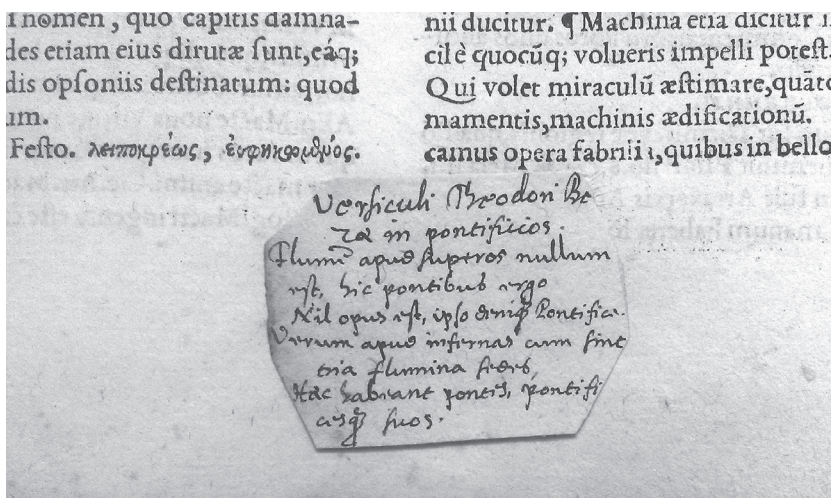 nomen, quo capitis damna-
des etiam eius dirutæ ſunt, eáq;
dis opſoniis deſtinatum: quod
um.
Feſto. λειποκρέως,
nii ducitur. ¶ Machina etiā dicitur
cil è quocūq; volueris impelli poteſt.
Qui volet miraculū æſtimare, quāto
mamentis, machinis ædificationū.
camus opera fabrili, quibus in bello
Verſiculi Theodori Be
zæ in pontificios.
Flumē apud ſuperos nullum
eſt, hic pontibus ergo
Nil opus eſt, ipſo deniq; Pontifice.
Verum apud infernas cum ſint
tria flumina ſedes,
Hæc habeant pontes, pontifi
cesq; ſuos.